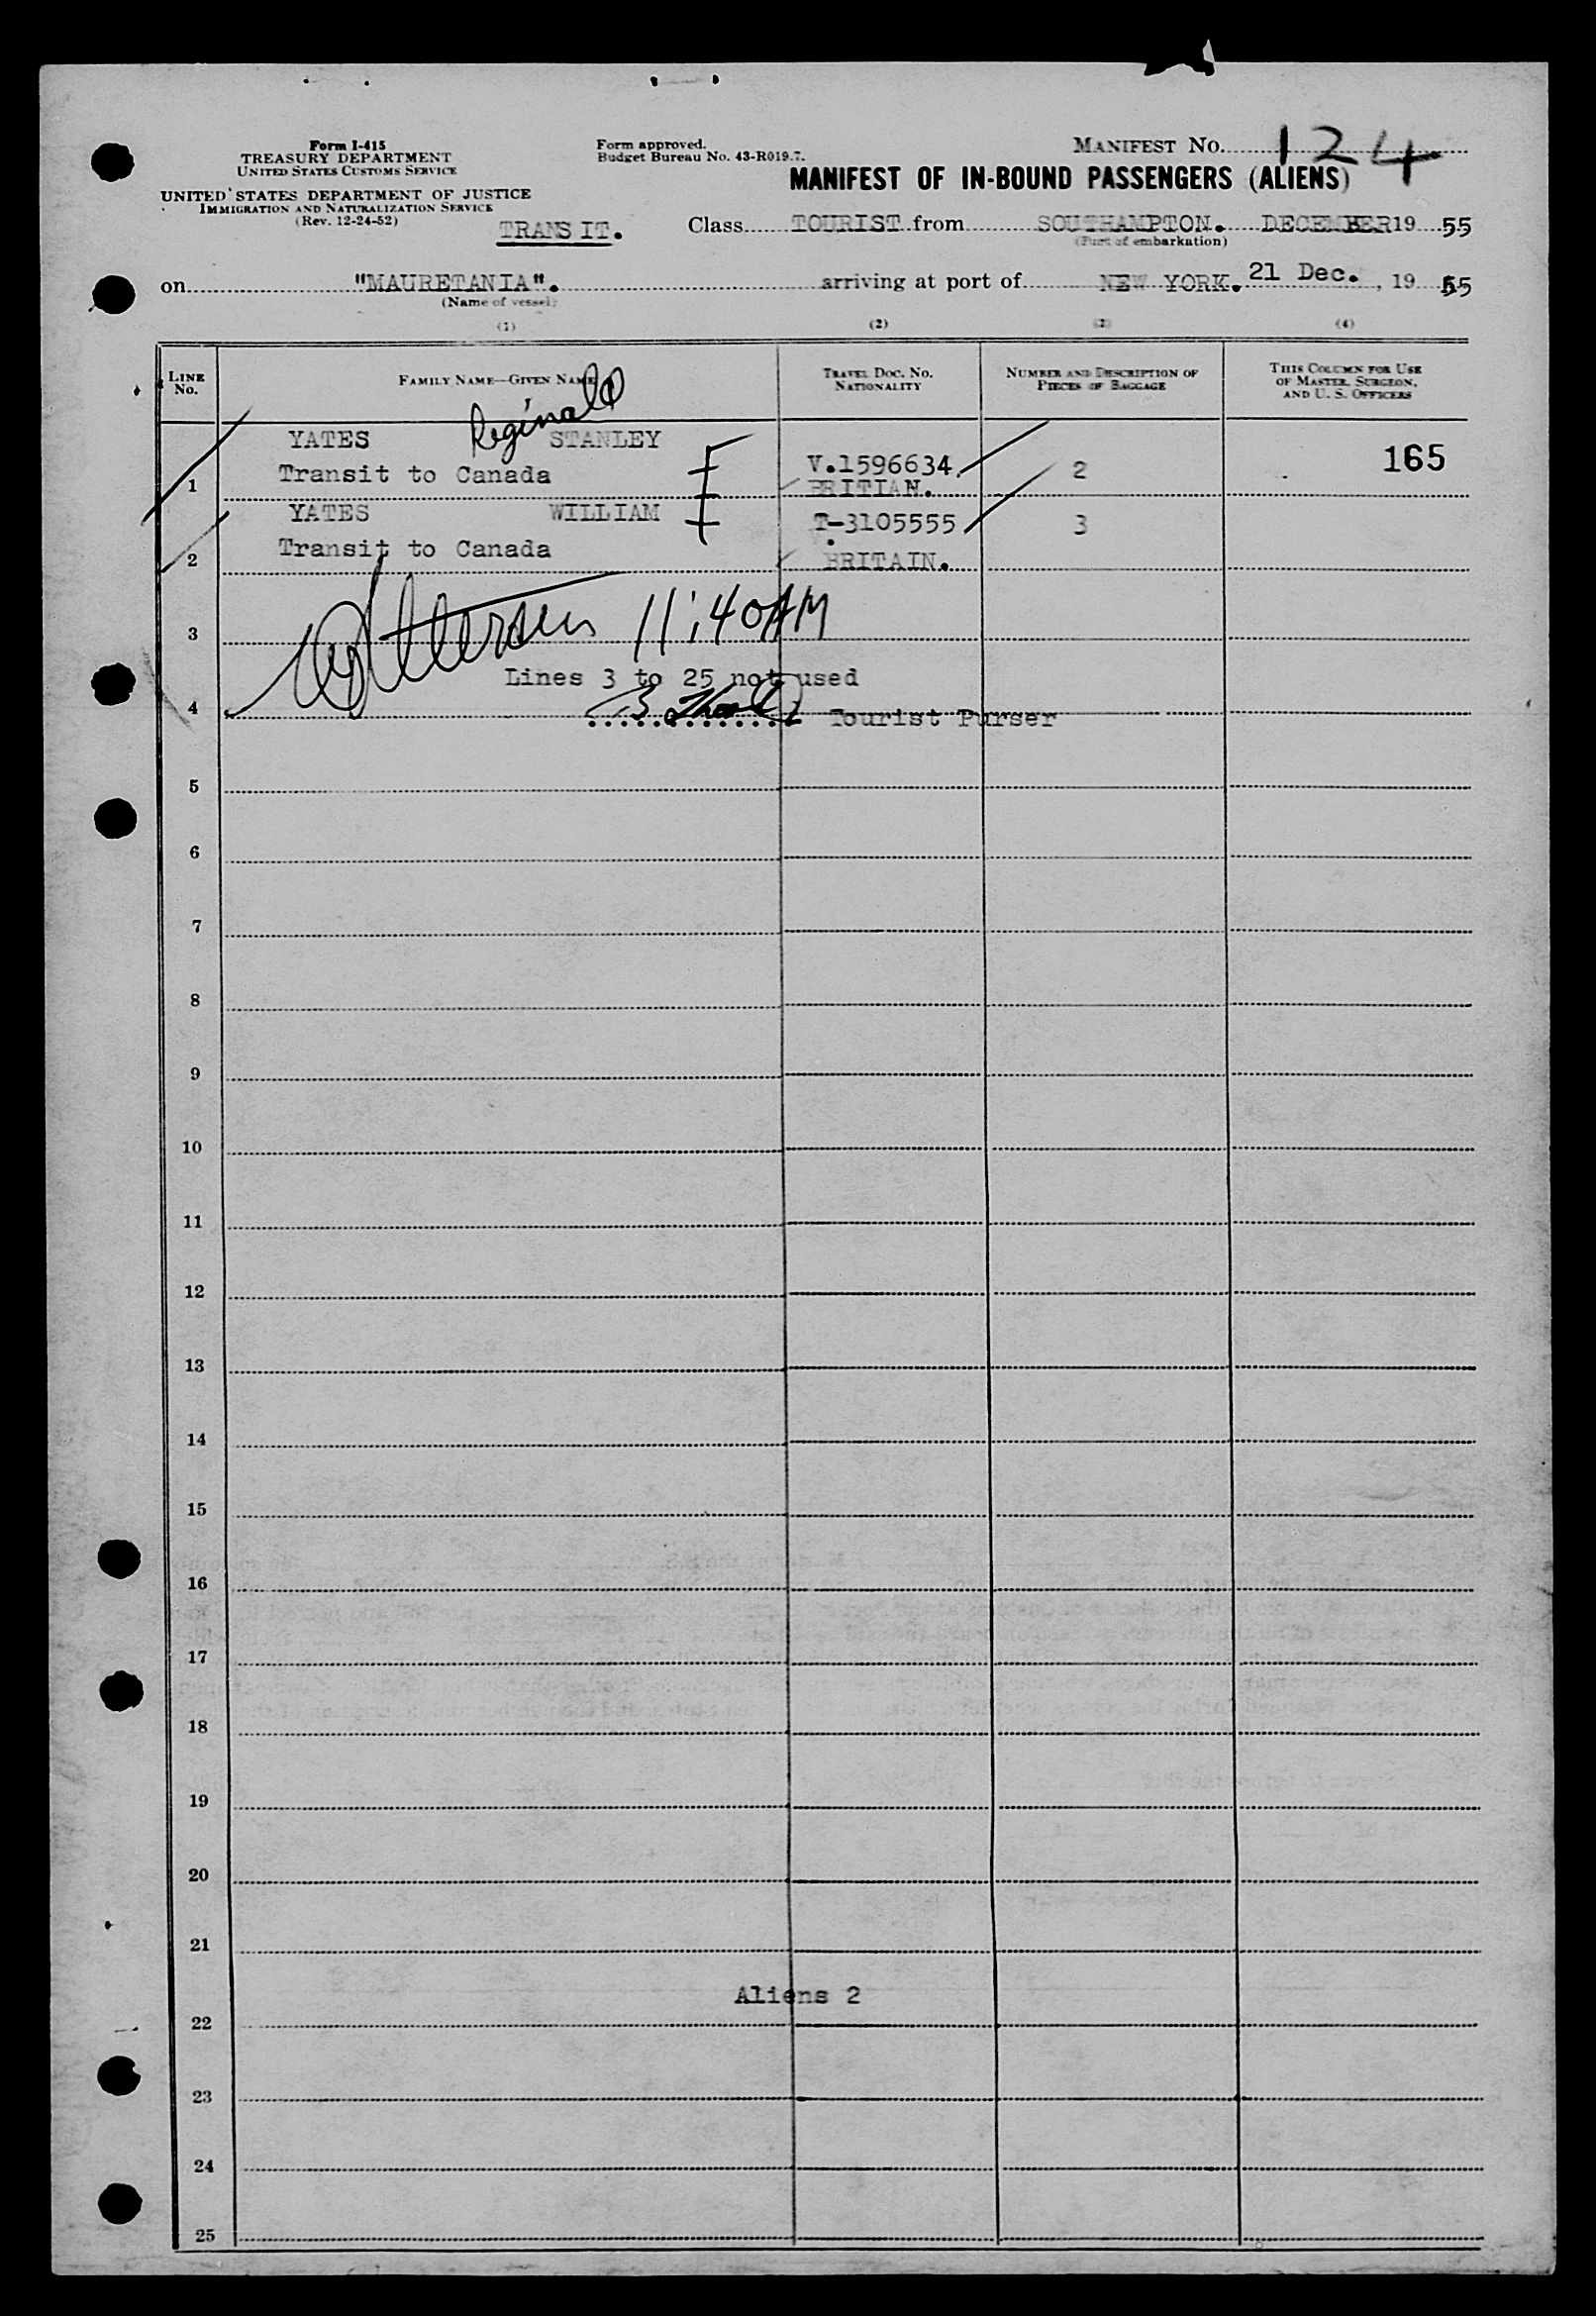 Form I-415
TREASURY DEPARTMENT
UNITED STATES CUSTOMS SERVICE
UNITED STATES DEPARTMENT OF JUSTICE
IMMIGRATION AND NATURALIZATION SERVICE
(Rev. 12-24-52)
Form approved.
Budget Bureau No. 43-R019.7.
MANIFEST No. 124
MANIFEST OF IN-BOUND PASSENGERS (ALIENS)
TRANSIT. Class TOURIST from SOUTHAMPTON. DECEMBER 19 55
(Port of embarkation)
on "MAURETANIA". arriving at port of NEW YORK. 21 Dec., 19 55
(Name of vessel)
(1) (2) (3) (4)
LINE No. FAMILY NAME—GIVEN NAME TRAVEL DOC. No. NATIONALITY NUMBER AND DESCRIPTION OF PIECES OF BAGGAGE THIS COLUMN FOR USE OF MASTER, SURGEON, AND U. S. OFFICERS
YATES Reginald STANLEY
1 Transit to Canada V.1596634 BRITIAN. 2 165
YATES WILLIAM T-3105555 3
2 Transit to Canada BRITAIN.
3 11:40AM
Lines 3 to 25 not used
4 Tourist Purser
5
6
7
8
9
10
11
12
13
14
15
16
17
18
19
20
21
Aliens 2
22
23
24
25